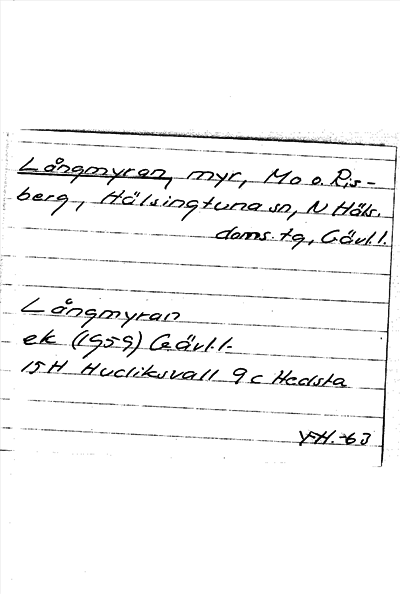 Långmyran, myr, Mo o. Ris-
berg, Hälsingtuna sn, N Häls.
doms. tg, Gävl.l.
Långmyran
ek (1959) Gävl.l.
15H Hudiksvall 9c Hedsta
YH.-63